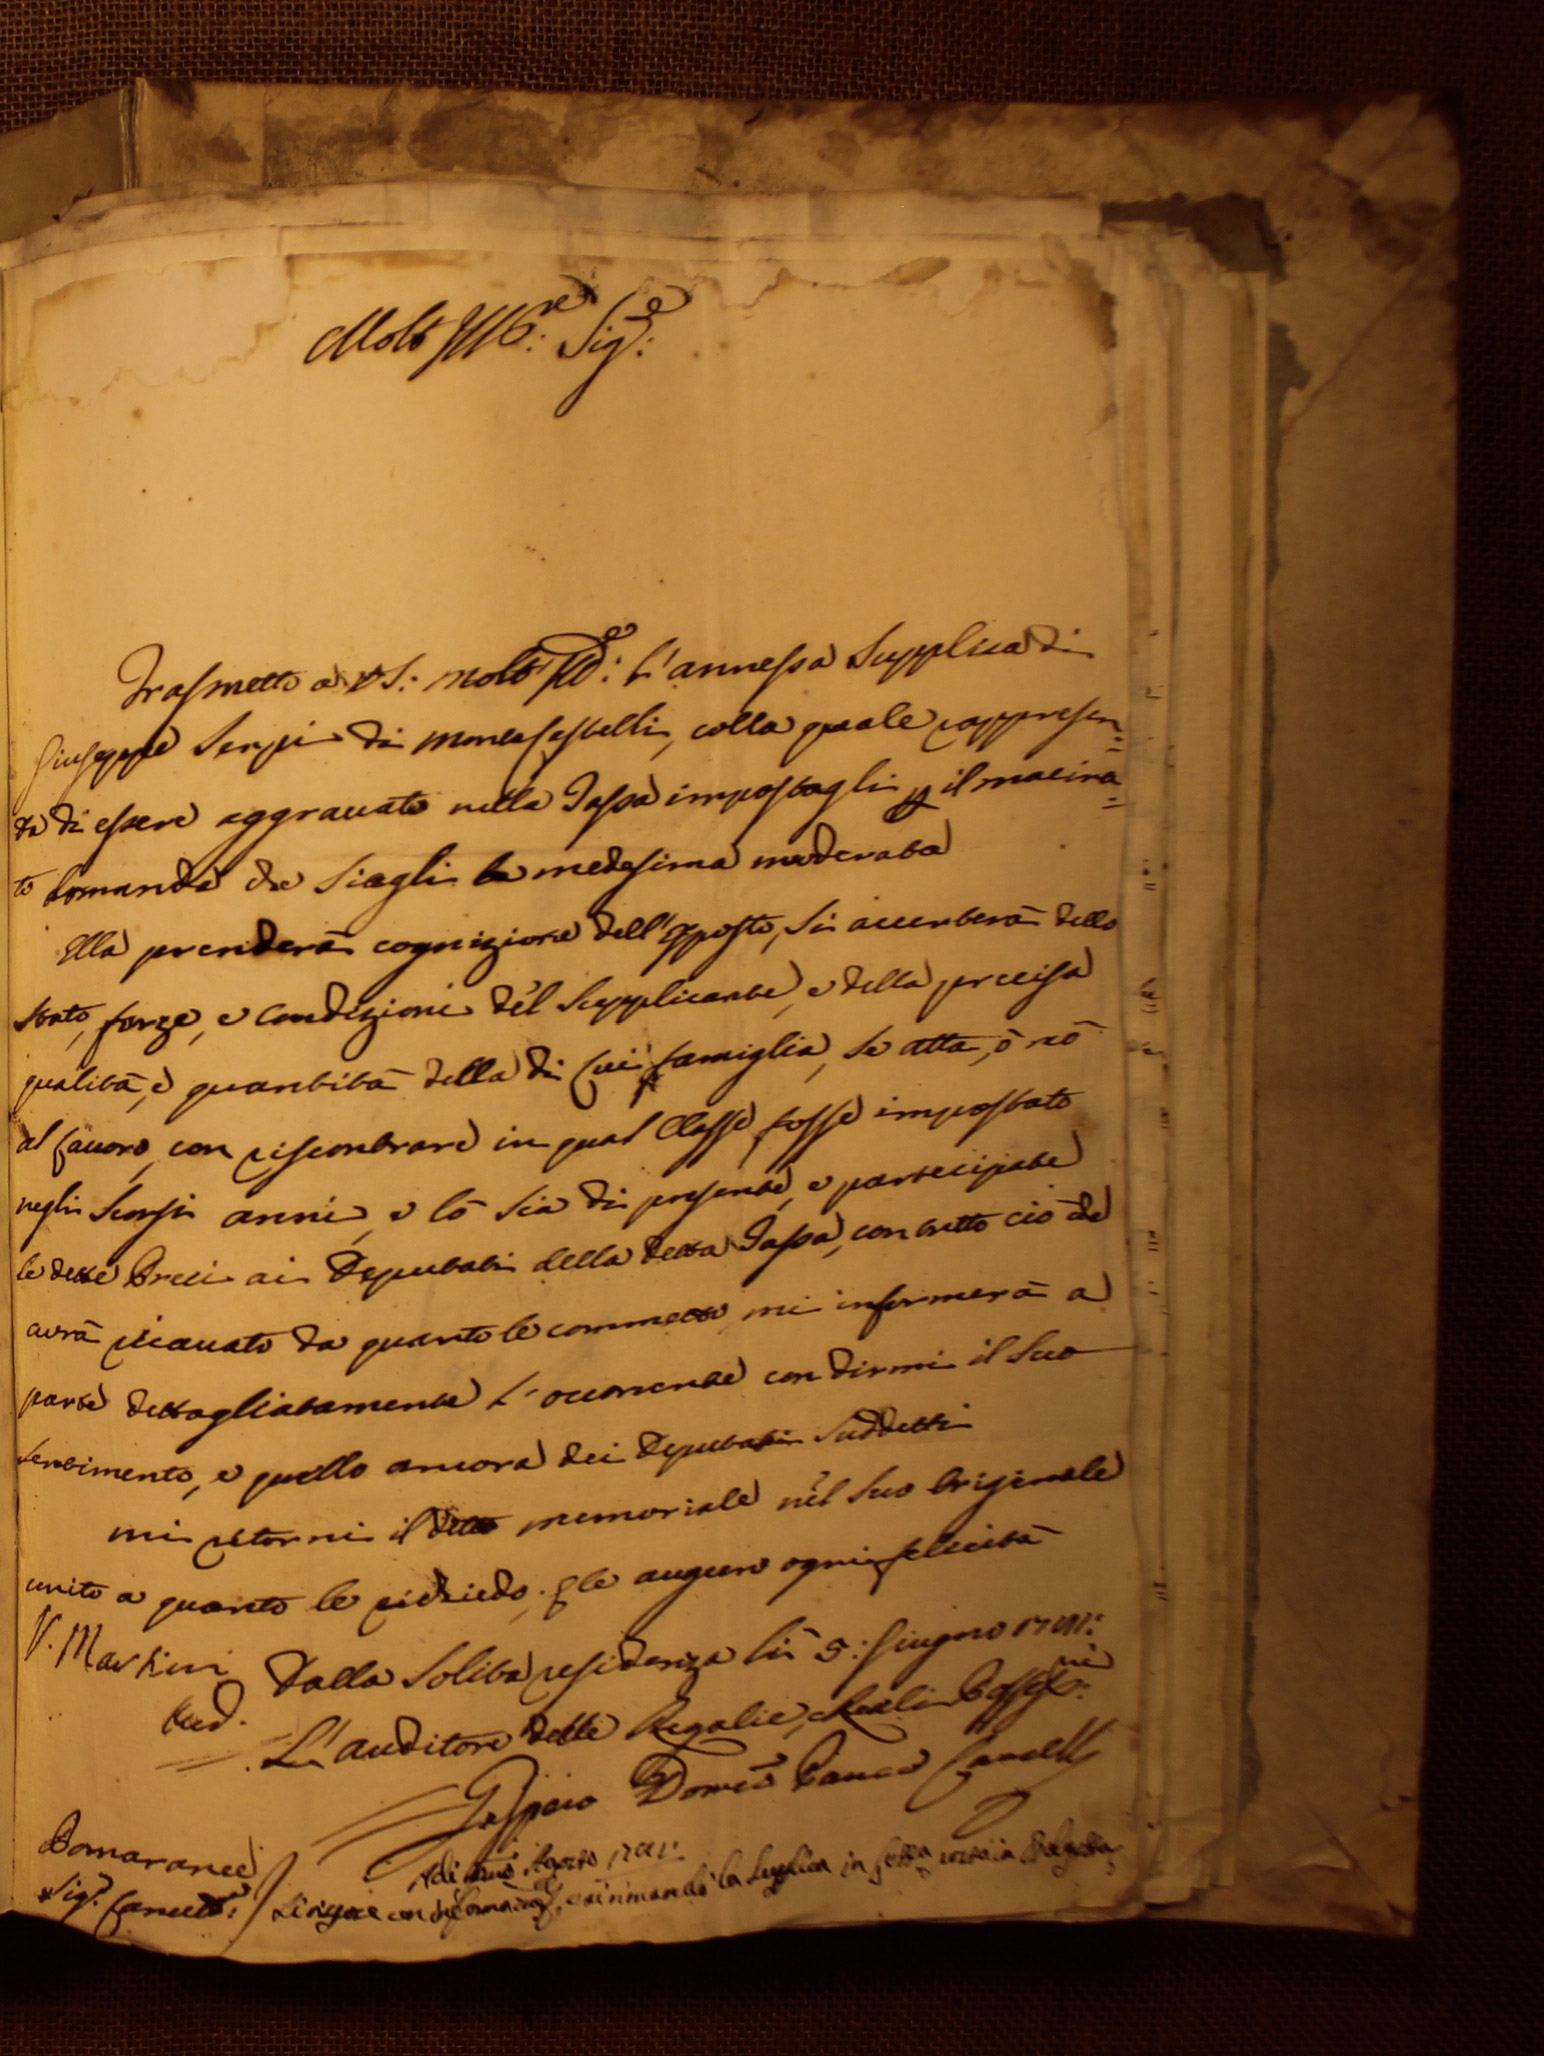 Molto Ill.re: Sig.re:
Trasmetto a VS: molto Ill.re: l'annessa Supplica di
Giuseppe Serpi di Montecastelli, colla quale rappresen=
ta di essere aggrauato nella Tassa impostagli p il macina=
to domanda che siagli la medesima moderata
Ella prenderà cognizione dell'Esposto, si accerterà dello
stato, forze, e condizioni del Supplicante, e della precisa
qualità, e quantità della di cui famiglia, se atta, ò nò
al lauoro, con riscontrare in qual Classe fosse impostato
negli scorsi anni, e lo sia di presente, e partecipate
le dette Preci ai Deputati della detta Tassa, con tutto ciò che
aurà ricauato da quanto le commetto mi informerà a
parte dettagliatamente l'occorrente con dirmi il suo
sentimento, e quello ancora dei Deputati suddetti
mi ritorni il detto memoriale nel suo originale
unito a quanto le richiedo, e le auguro ogni felicità
V. Martini Dalla Solita residenza li 5: Giugno
Aud. L'Auditore delle Regalie, e Reali Possess:ni
Domco
Pomarance
Sig.r Cancell:
Adi Agosto
la supplica in